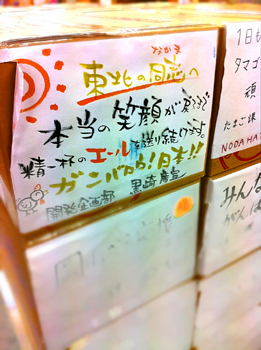 なかま
東北の同志へ
本当の笑顔が戻るまで
精一杯のエールを送り続けます。
ガンバろう!日本!!
開発企画部 黒崎
1日も
タマゴ
頑
たまご課
NODA HA
みんな
がんば